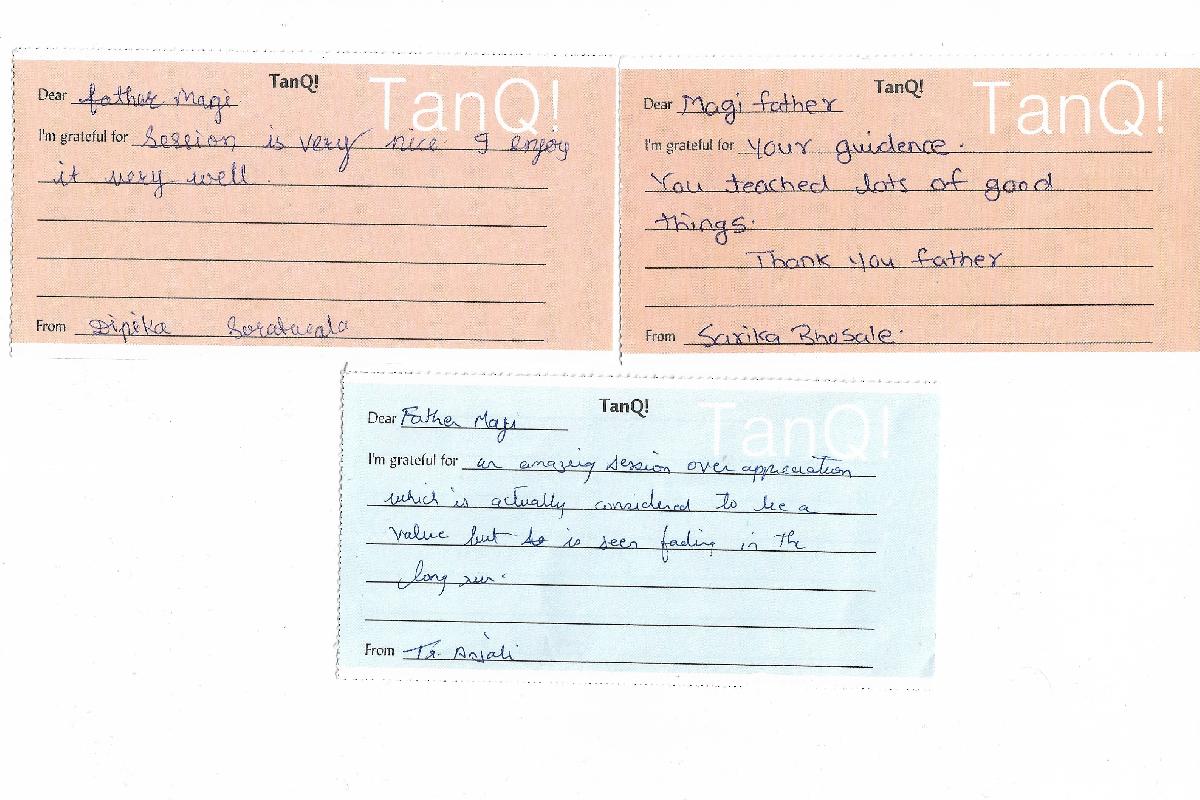 TanQ!
TanQ!
Dear father Magi
I'm grateful for Session is very nice I enjoy
it very well.
From Dipika
TanQ!
TanQ!
Dear Magi father
I'm grateful for Your guidence.
You teached lots of good
things.
Thank you father
From Sarika Bhosale.
TanQ!
TanQ!
Dear Father Magi
I'm grateful for an amazing session over appreciation
which is actually considered to be a
value but is seen fading in the
long run.
From Tr. Anjali